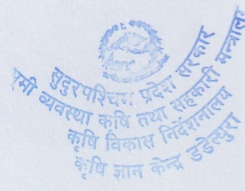 सुदुरपश्चिम प्रदेश सरकार
भूमी व्यवस्था कृषि तथा सहकारी मन्त्रालय
कृषि विकास निर्देशनालय
कृषि ज्ञान केन्द्र डडेल्धुरा